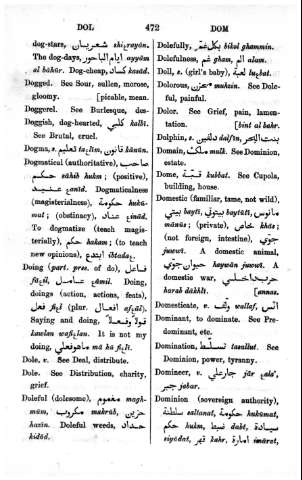 DOL
472
DOM
dog-stars, شعريان shiʒrayān.
The dog-days, ايام الباحور ayyām
al bāhūr. Dog-cheap, كساد kasād.
Dogged. See Sour, sullen, morose,
gloomy. [picable, mean.
Doggerel. See Burlesque, des-
Doggish, dog-hearted, كلبي kalbī.
See Brutal, cruel.
Dogma, s. تعليم taʒlīm, قانون kānūn.
Dogmatical (authoritative), صاحب
حكم sāhib hukm; (positive),
عنيد ʒanīd. Dogmaticalness
(magisterialness), حكومة hukū-
mat; (obstinacy), عناد ʒinād.
To dogmatize (teach magis-
terially), حكم hakam; (to teach
new opinions), ابتدع ibtadaʒ.
Doing (part. pres. of do), فاعل
fāʒil, عامل ʒāmil. Doing,
doings (action, actions, feats),
فعل fiʒl (plur. افعال afʒāl).
Saying and doing, قولاً وفعلاً
kawlan wafiʒlan. It is not my
doing, ما هو فعلي mā hū fiʒlī.
Dole, v. See Deal, distribute.
Dole. See Distribution, charity,
grief.
Doleful (dolesome), مغموم magh-
mūm, مكروب makrūb, حزين
hazīn. Doleful weeds, حداد
hidād.
Dolefully, بكل غم bikol ghammin.
Dolefulness, غم gham, الم alam.
Doll, s. (girl's baby), لعبة luʒbat.
Dolorous, محزن muhzin. See Dole-
ful, painful.
Dolor. See Grief, pain, lamen-
tation. [bint al bahr.
Dolphin, s. دلفين dulfīn, بنت البحر
Domain, ملك malk. See Dominion,
estate.
Dome, قبة kubbat. See Cupola,
building, house.
Domestic (familiar, tame, not wild),
بيتي baytī, بيتوتي baytūtī, مانوس
mānūs; (private), خاص khās;
(not foreign, intestine), جوي
juwwī. A domestic animal,
حيوان جوي haywān juwwī. A
domestic war, حرب داخلي
harab dākhlī. [annas.
Domesticate, v. ولف wallef, انس
Dominant, to dominate. See Pre-
dominant, etc.
Domination, تسلط tasallut. See
Dominion, power, tyranny.
Domineer, v. جار علي jār ʒala',
جبر jabar.
Dominion (sovereign authority),
سلطنة saltanat, حكومة hukūmat,
حكم hukm, ضبط dabt, سيادة
siyādat, قهر kahr, امارة imārat,